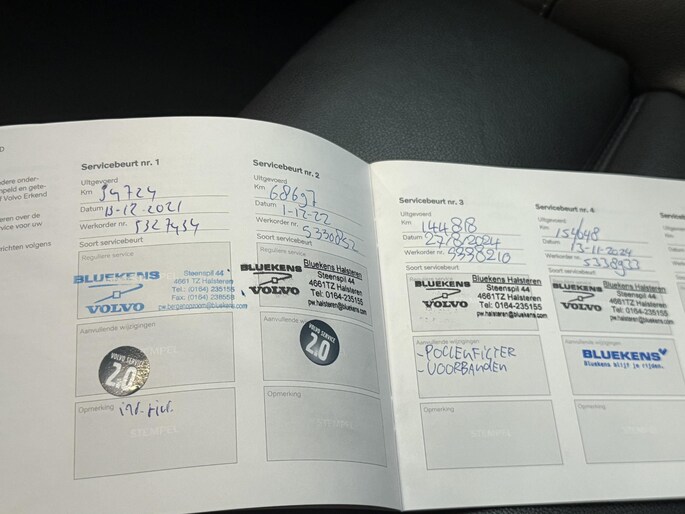 D
dere onder-
mpeld en gete-
f Volvo Erkend
eren over de
rvice voor uw
richten volgens
Servicebeurt nr. 1
Uitgevoerd
Km 34724
Datum 13-12-2021
Werkorder nr. 5327434
Soort servicebeurt
Reguliere service
BLUEKENS
VOLVO
Steenspil 44
4661 TZ Halsteren
Tel.: (0164) 235155
Fax: (0164) 238658
pw.bergenopzoom@bluekens.com
Aanvullende wijzigingen
VOLVO SERVICE
2.0
Opmerking
STEMPEL
Servicebeurt nr. 2
Uitgevoerd
Km 68697
Datum 1-12-22
Werkorder nr. 5330852
Soort servicebeurt
Reguliere service
BLUEKENS
VOLVO
Bluekens Halsteren
Steenspil 44
4661TZ Halsteren
Tel: 0164-235155
pw.halsteren@bluekens.com
Aanvullende wijzigingen
VOLVO SERVICE
2.0
Opmerking
STEMPEL
Servicebeurt nr. 3
Uitgevoerd
Km 144818
Datum 27/8/2024
Werkorder nr. 5338210
Soort servicebeurt
BLUEKENS
VOLVO
Bluekens Halsteren
Steenspil 44
4661TZ Halsteren
Tel: 0164-235155
pw.halsteren@bluekens.com
Aanvullende wijzigingen
-POLLENFILTER
-VOORBANDEN
Opmerking
Servicebeurt nr. 4
Uitgevoerd
Km 154648
Datum 13-11-2024
Werkorder nr. 5338933
Soort servicebeurt
BLUEKENS
VOLVO
Bluekens Halsteren
Steenspil 44
4661TZ Halsteren
Tel: 0164-235155
pw.halsteren@bluekens.com
Aanvullende wijzigingen
BLUEKENS
Bluekens blijf je rijden.
Opmerking
Servic
Uitgevoe
Km
Datum
Werkorder
Soort s